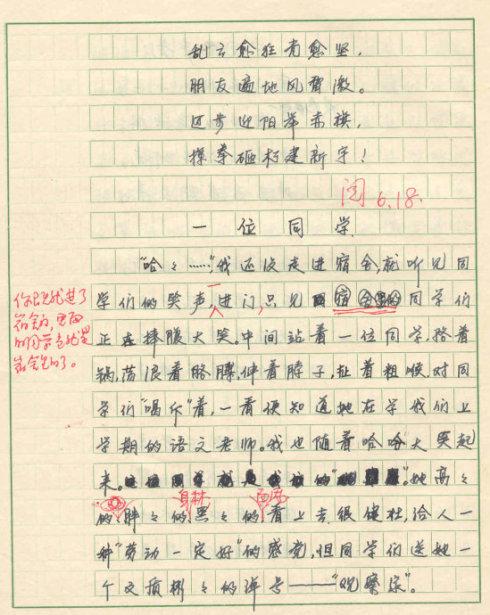 乱云愈狂劳愈坚,
朋友遍地风雷激。
迈步迎阳举赤旗,
挥拳砸朽建新宇!
阅 6.18.
一位同学
“哈々……”我还没走进宿舍,就听见同
学们的笑声,进门,只见宿舍里的同学们
正在捧腹大笑。中间站着一位同学,
着胳膊,伸着脖子,扯着粗喉,对同
学们“喝斥”着,一看便知道她在学我们上
学期的语文老师。我也随着哈哈大笑起
来。她高々
的,胖々的,黑々的,看上去很健壮,给人一
种“劳动一定好”的感觉,但同学们送她一
个文质彬々的浑号——“观察家”。
你已经进了
宿舍,里面
的同学也就是
宿舍里的了。
身材